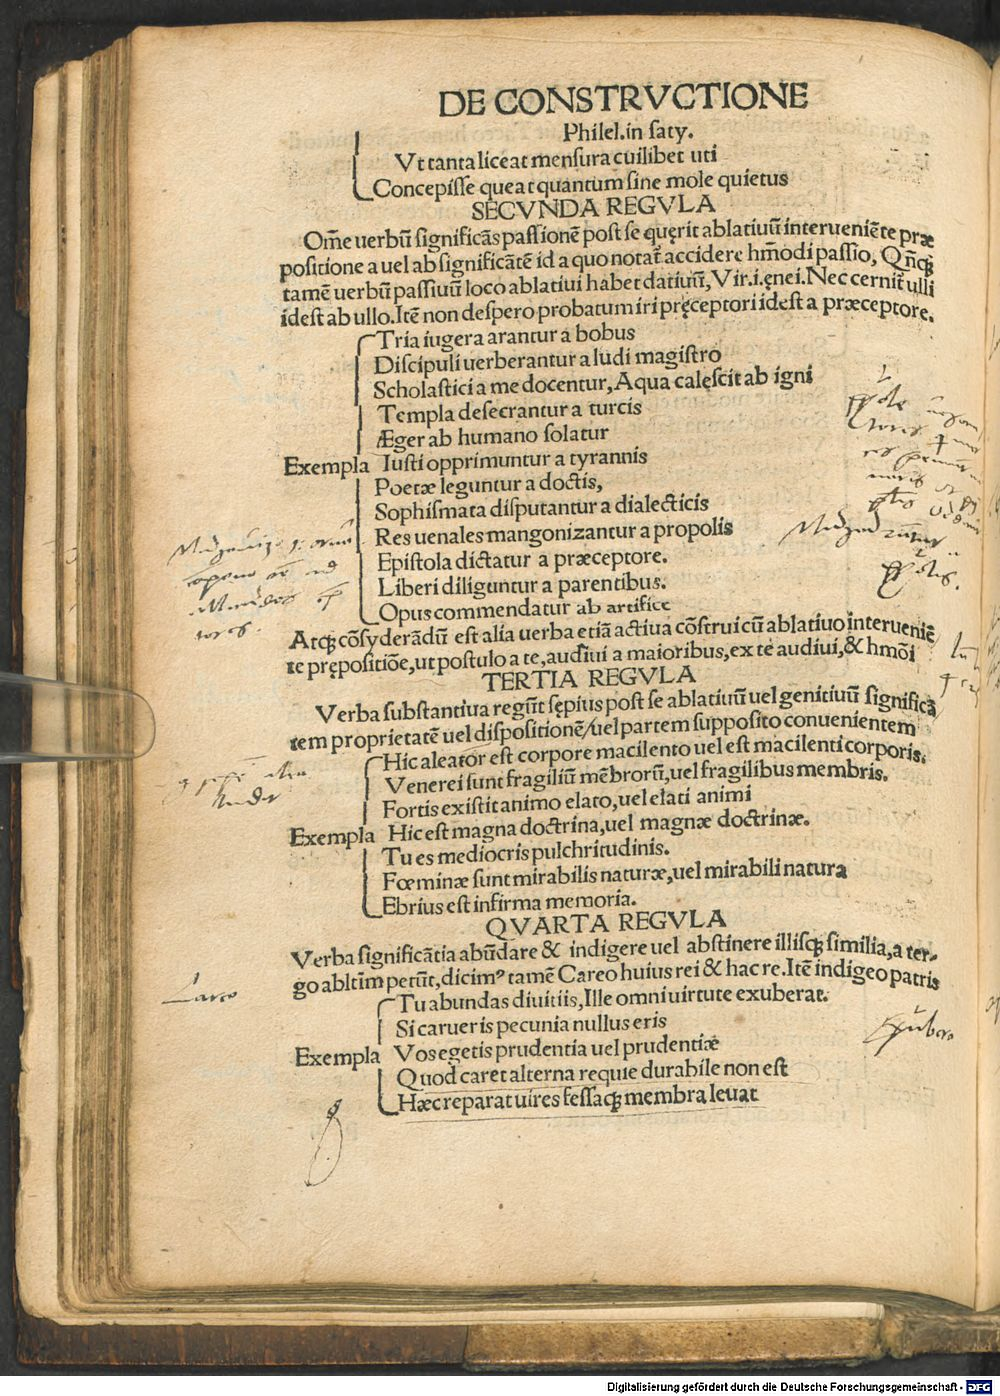 DE CONSTRVCTIONE
Philel.in saty.
Vt tanta liceat mensura cuilibet uti
Concepisse queat quantum sine mole quietus
SECVNDA REGVLA
Om̄e uerbū significās passionē post se quęrit ablatiuū interueniēte præ
positione a uel ab significātē id a quo notat᷑ accidere hm̄odi passio, Qn̄q̨
tamē uerbū passiuū loco ablatiui habet datiuū, Vir.i.ęnei. Nec cernit᷑ ulli
idest ab ullo. Itē non despero probatum iri pręceptori idest a præceptore.
Tria iugera arantur a bobus
Discipuli uerberantur a ludi magistro
Scholastici a me docentur, Aqua calęscit ab igni
Templa desecrantur a turcis
Æger ab humano solatur
Exempla Iusti opprimuntur a tyrannis
Poetæ leguntur a doctis,
Sophismata disputantur a dialecticis
Res uenales mangonizantur a propolis
Epistola dictatur a præceptore.
Liberi diliguntur a parentibus.
Opus commendatur ab artifice
Atq̨ cōsyderādū est alia uerba etiā actiua cōstrui cū ablatiuo interueniē
te prępositiōe, ut postulo a te, audiui a maioribus, ex te audiui, & hmōi
TERTIA REGVLA
Verba substantiua regūt sępius post se ablatiuū uel genitiuū significā
tem proprietatē uel dispositionē/uel partem supposito conuenientem
Hic aleator est corpore macilento uel est macilenti corporis.
Venerei sunt fragiliū mēbrorū, uel fragilibus membris.
Fortis existit animo elato, uel elati animi
Exempla Hic est magna doctrina, uel magnæ doctrinæ.
Tu es mediocris pulchritudinis.
Fœminæ sunt mirabilis naturæ, uel mirabili natura
Ebrius est infirma memoria.
QVARTA REGVLA
Verba significātia abūdare & indigere uel abstinere illisq̨ similia, a ter-
go abltīm petūt, dicim⁹ tamē Careo huius rei & hac re. Itē indigeo patris
Tu abundas diuitiis, Ille omni uirtute exuberat.
Si carueris pecunia nullus eris
Exempla Vos egetis prudentia uel prudentiæ
Quod caret alterna requie durabile non est
Hæc reparat uires fessaq̨ membra leuat
Digitalisierung gefördert durch die Deutsche Forschungsgemeinschaft - DFG